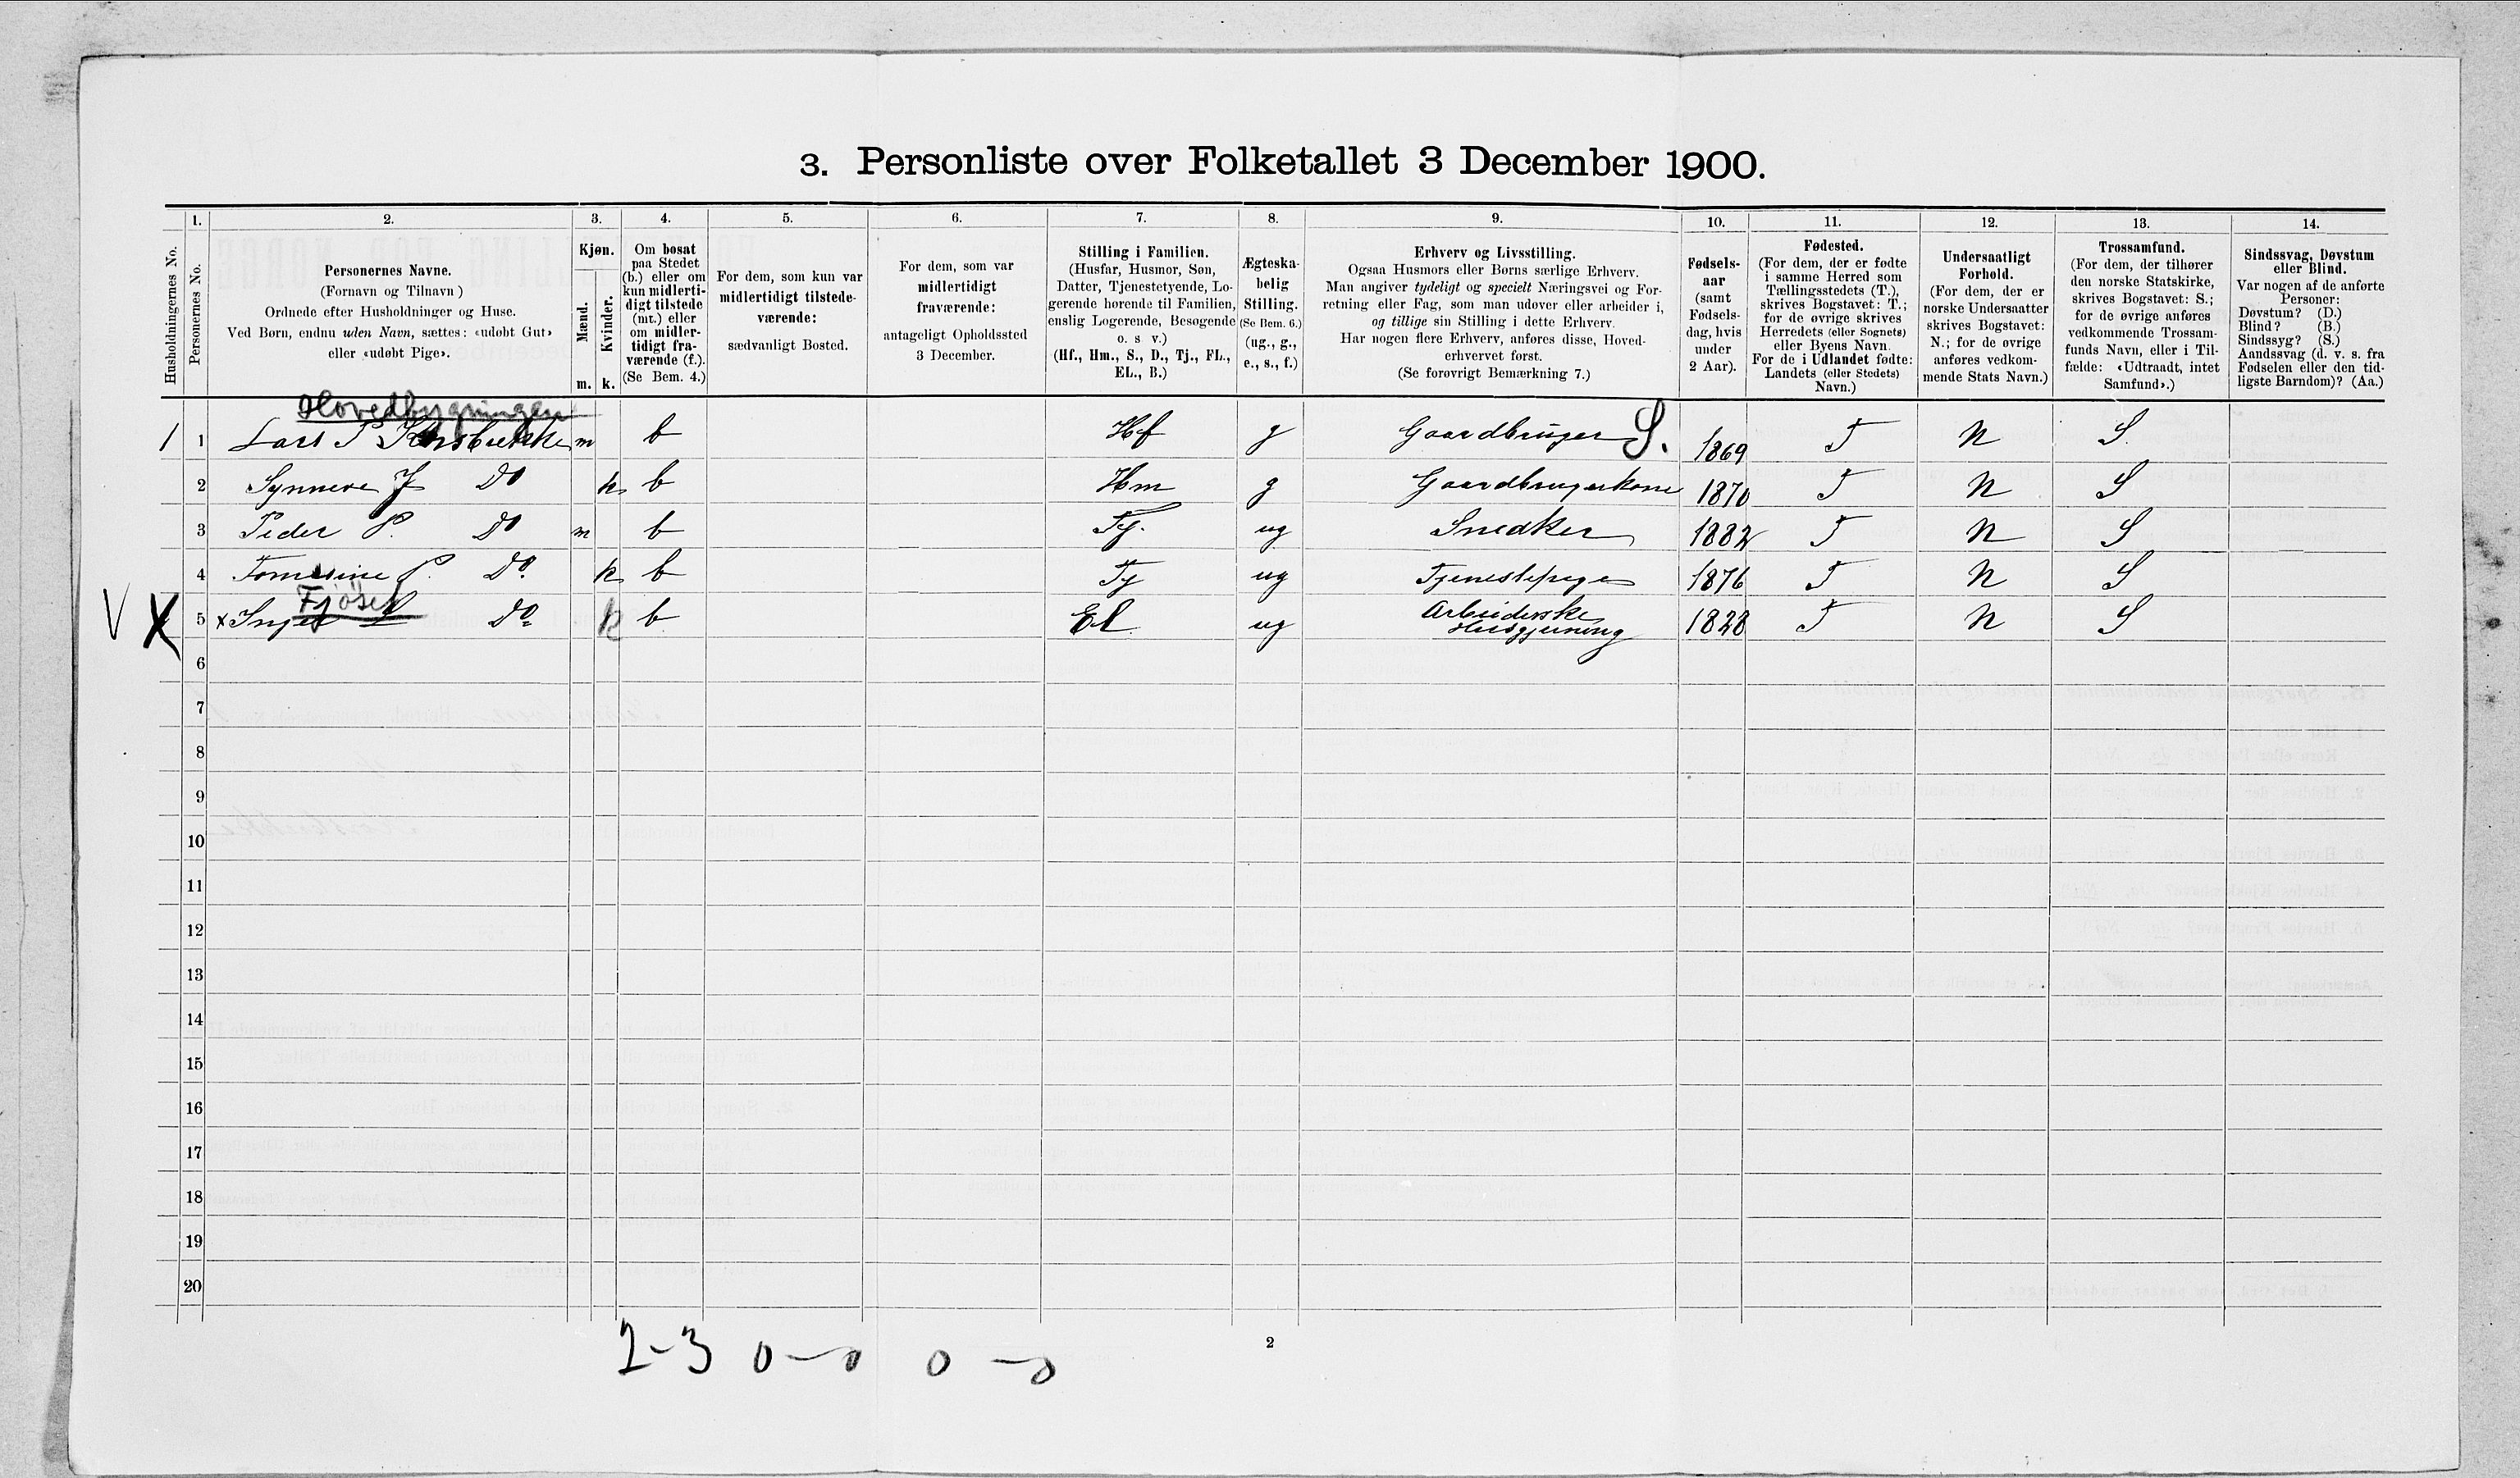 3. Personliste over Folketallet 3 December 1900.
1. 2. 3. 4. 5. 6. 7. 8. 9. 10. 11. 12. 13. 14.
Husholdningernes No.
Personernes No.
Personernes Navne.
(Fornavn og Tilnavn)
Ordnede efter Husholdninger og Huse.
Ved Børn, endnu uden Navn, sættes: «udøbt Gut»
eller «udøbt Pige».
Kjøn.
Mænd.
Kvinder.
m. k.
Om bosat
paa Stedet
(b.) eller om
kun midlerti-
digt tilstede
(mt.) eller
om midler-
tidigt fra-
værende (f.).
(Se Bem. 4.)
For dem, som kun var
midlertidigt tilstede-
værende:
sædvanligt Bosted.
For dem, som var
midlertidigt
fraværende:
antageligt Opholdssted
3 December.
Stilling i Familien.
(Husfar, Husmor, Søn,
Datter, Tjenestetyende, Lo-
gerende hørende til Familien,
enslig Logerende, Besøgende
o. s. v.)
(Hf., Hm., S., D., Tj., FL.,
EL., B.)
Ægteska-
belig
Stilling.
(Se Bem. 6.)
(ug., g.,
e., s., f.)
Erhverv og Livsstilling.
Ogsaa Husmors eller Børns særlige Erhverv.
Man angiver tydeligt og specielt Næringsvei og For-
retning eller Fag, som man udøver eller arbeider i,
og tillige sin Stilling i dette Erhverv.
Har nogen flere Erhverv, anføres disse, Hoved-
erhvervet først.
(Se forøvrigt Bemærkning 7.)
Fødsels-
aar
(samt
Fødsels-
dag, hvis
under
2 Aar).
Fødested.
(For dem, der er fødte
i samme Herred som
Tællingsstedets (T.),
skrives Bogstavet: T.;
for de øvrige skrives
Herredets (eller Sognets)
eller Byens Navn.
For de i Udlandet fødte:
Landets (eller Stedets)
Navn.)
Undersaatligt
Forhold.
(For dem, der er
norske Undersaatter
skrives Bogstavet:
N.; for de øvrige
anføres vedkom-
mende Stats Navn.)
Trossamfund.
(For dem, der tilhører
den norske Statskirke,
skrives Bogstavet: S.;
for de øvrige anføres
vedkommende Trossam-
funds Navn, eller i Til-
fælde: «Udtraadt, intet
Samfund».)
Sindssvag, Døvstum
eller Blind.
Var nogen af de anførte
Personer:
Døvstum? (D.)
Blind? (B.)
Sindssyg? (S.)
Aandssvag (d. v. s. fra
Fødselen eller den tid-
ligste Barndom)? (Aa.)
Hovedbygningen
1 1 Lars P m b Hf g Gaardbruger S. 1869 T N S.
2 Synneve J Do k b Hm g Gaardbrugerkone 1870 T N S
3 Peder P. Do m b Tj. ug Snedker 1882 T N S
4 Tomasine P. Do. k b Tj ug Tjenestepige 1876 T N S
Fjøset
V X 5 x Inger Do k b El ug Arbeiderske 1828 T N S
Husgjerning
6
7
8
9
10
11
12
13
14
15
16
17
18
19
20
2-3 0-0 0-0
2